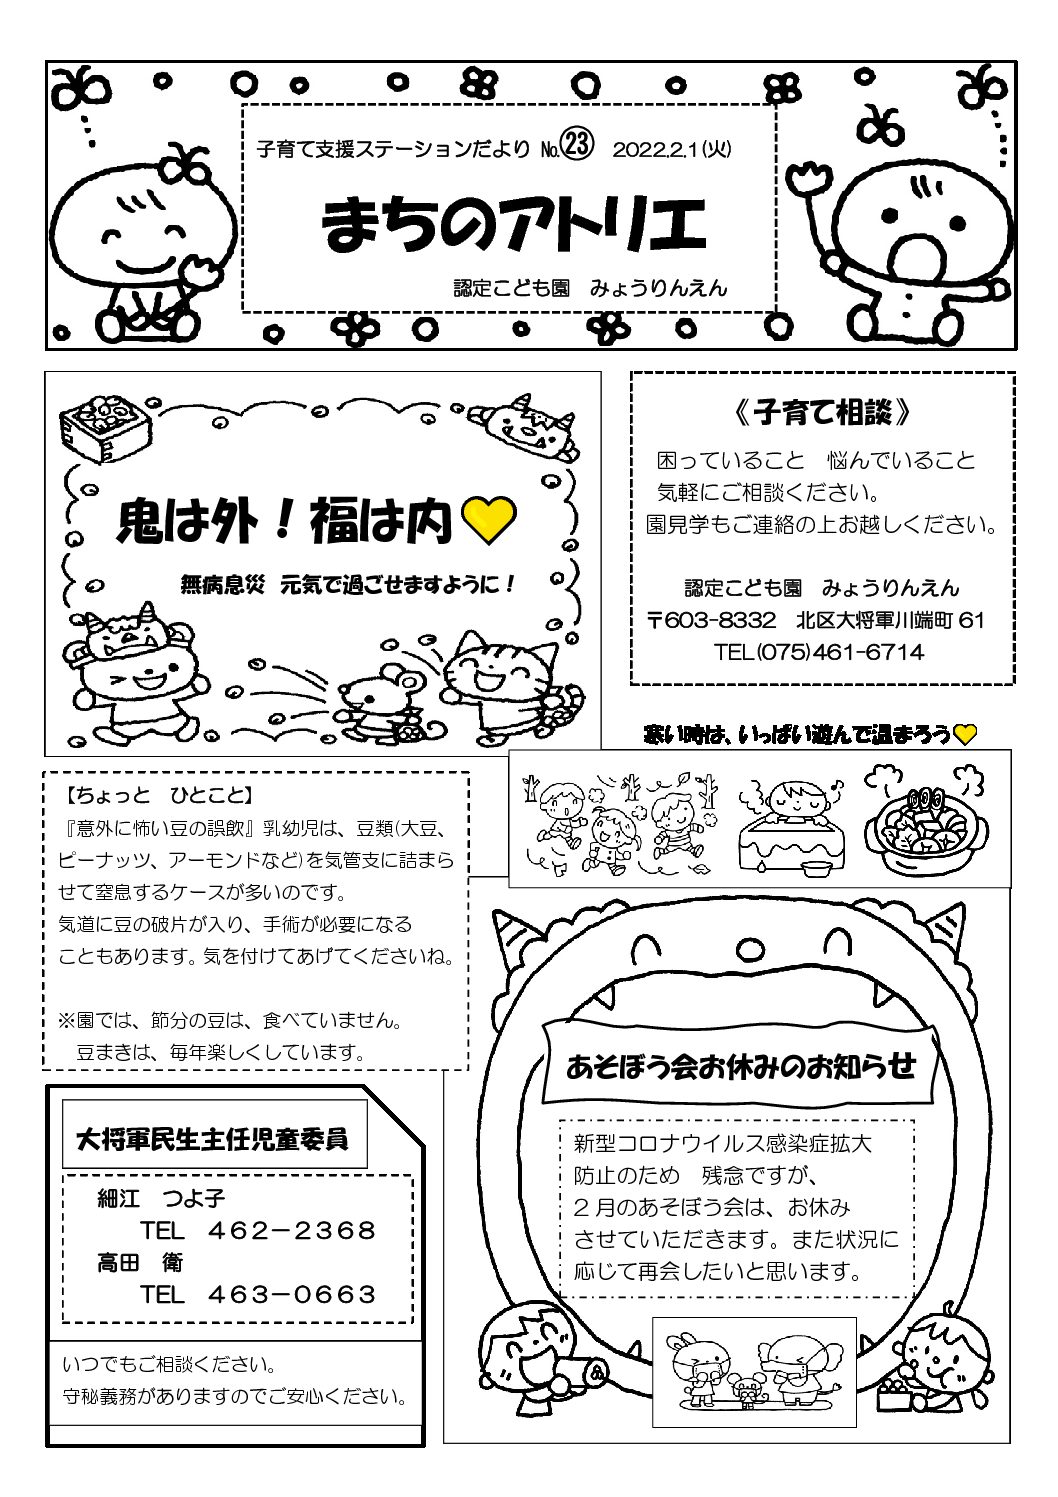 子育て支援ステーションだより №㉓ 2022.2.1(火)
まちのアトリエ
認定こども園 みょうりんえん
鬼は外！福は内
無病息災 元気で過ごせますように！
《子育て相談》
困っていること 悩んでいること
気軽にご相談ください。
園見学もご連絡の上お越しください。
認定こども園 みょうりんえん
〒603-8332 北区大将軍川端町 61
TEL(075)461-6714
寒い時は、いっぱい遊んで温まろう
【ちょっと ひとこと】
『意外に怖い豆の誤飲』乳幼児は、豆類(大豆、
ピーナッツ、アーモンドなど)を気管支に詰まら
せて窒息するケースが多いのです。
気道に豆の破片が入り、手術が必要になる
こともあります。気を付けてあげてくださいね。
※園では、節分の豆は、食べていません。
豆まきは、毎年楽しくしています。
あそぼう会お休みのお知らせ
新型コロナウイルス感染症拡大
防止のため 残念ですが、
2 月のあそぼう会は、お休み
させていただきます。また状況に
応じて再会したいと思います。
大将軍民生主任児童委員
細江 つよ子
TEL ４６２－２３６８
高田 衛
TEL ４６３－０６６３
いつでもご相談ください。
守秘義務がありますのでご安心ください。